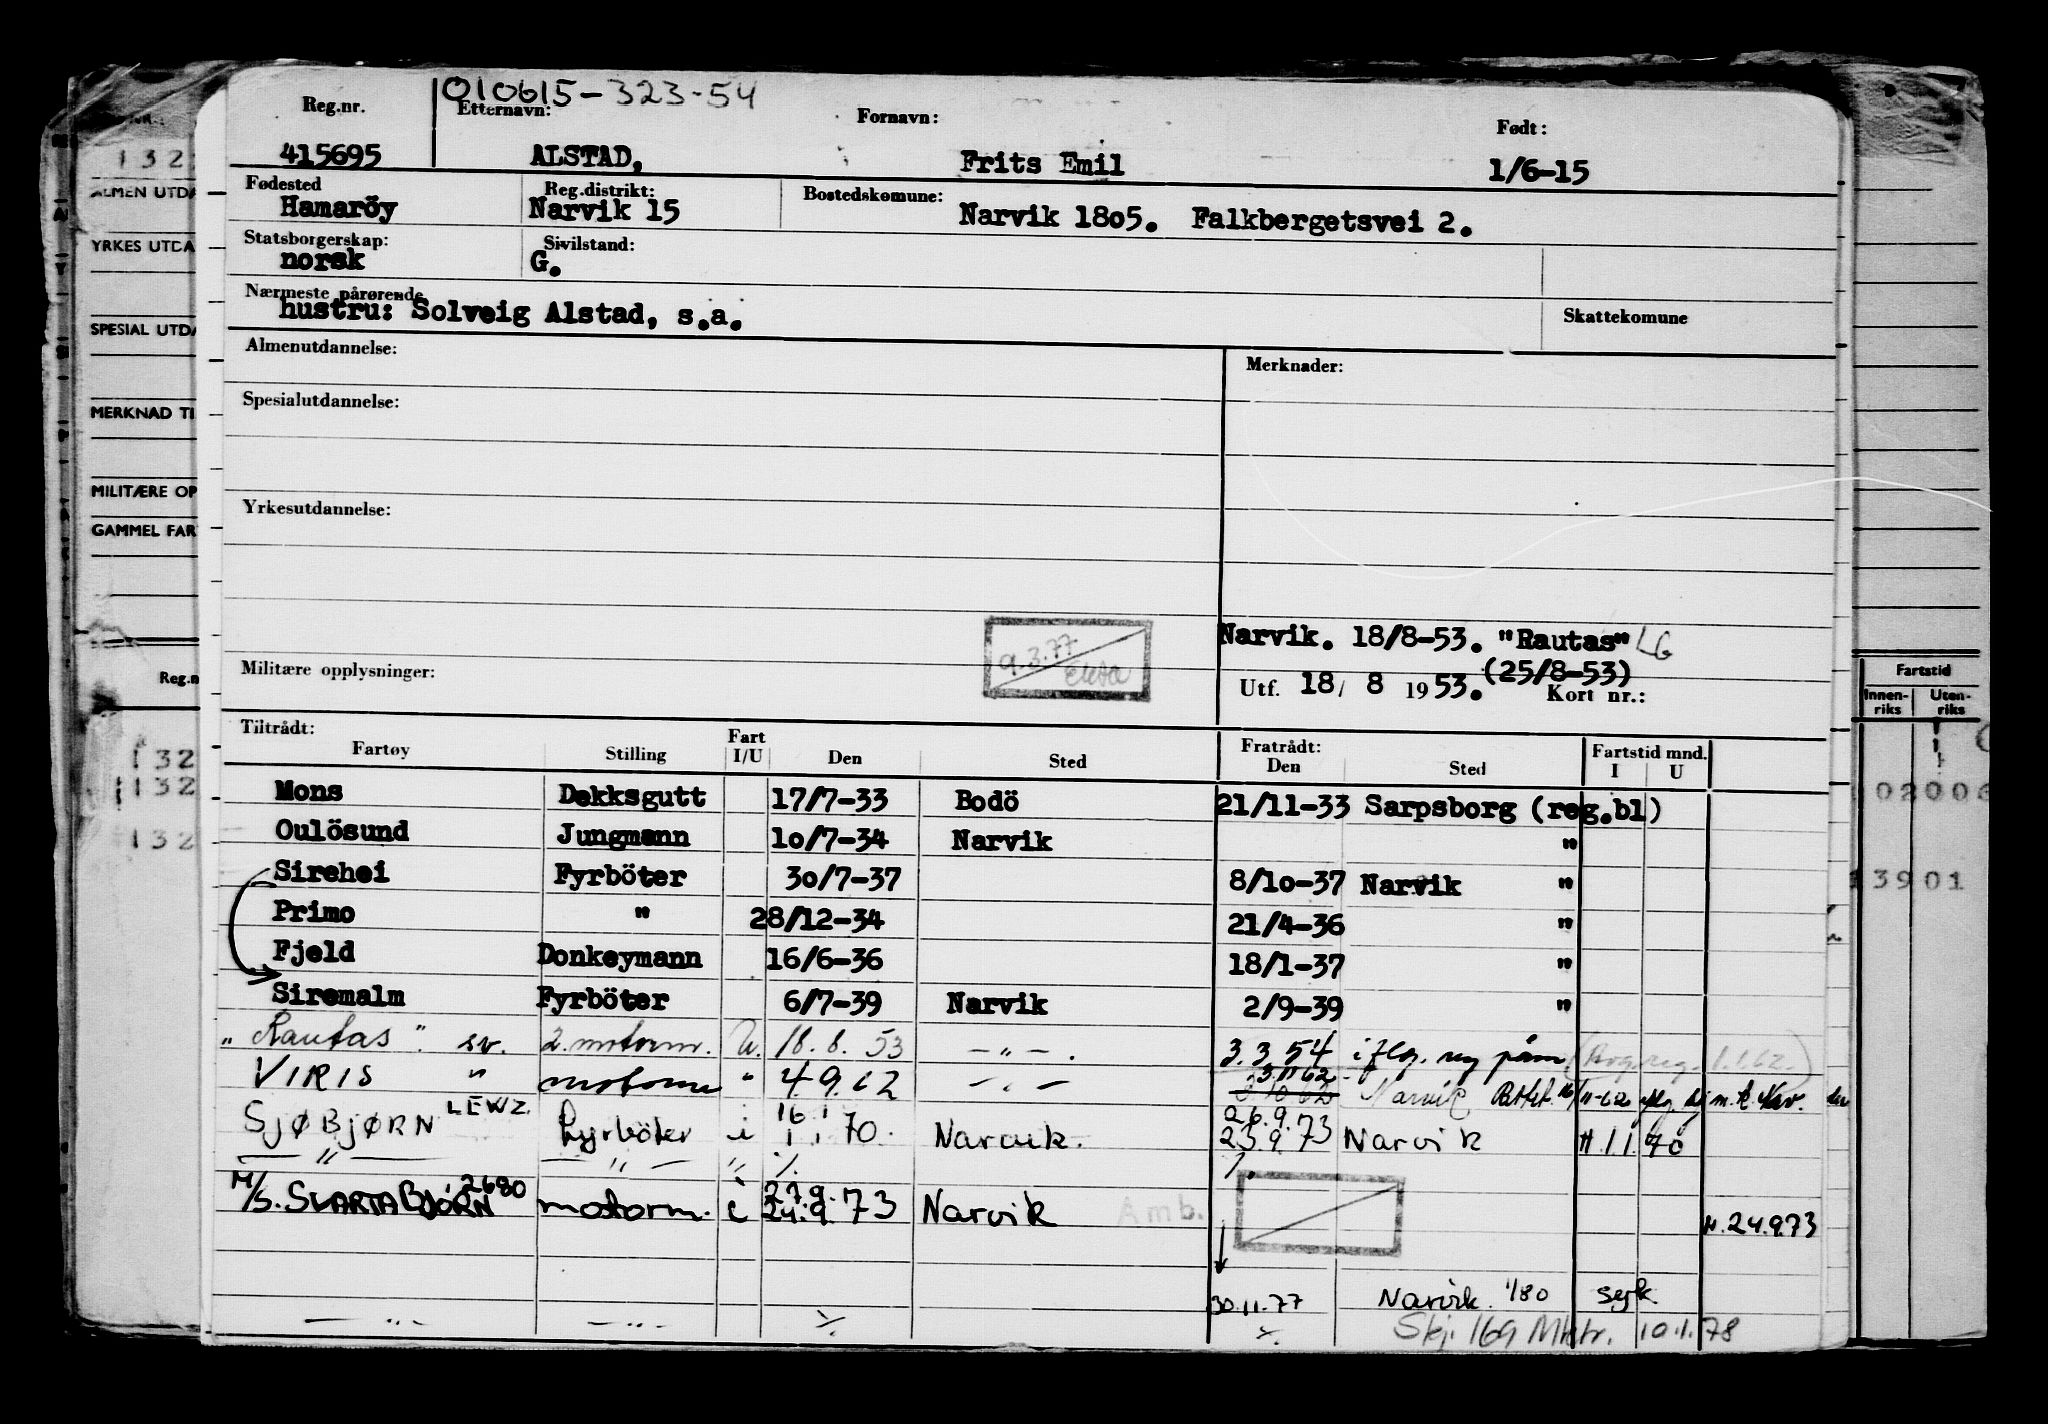 010615-323-54
Reg.nr. Etternavn: Fornavn: Født:
415695 ALSTAD, Frits Emil 1/6-15
Fødested Reg.distrikt: Bostedskomune:
Hamaröy Narvik 15 Narvik 1805. Falkbergetsvei 2.
Statsborgerskap: Sivilstand:
norsk G.
Nærmeste pårørende Skattekomune
hustru: Solveig Alstad, s.a.
Almenutdannelse: Merknader:
Spesialutdannelse:
Yrkesutdannelse:
Narvik. 18/8-53. "Rautas" LG
9.3.77
Militære opplysninger: (25/8-53)
Utf. 18/ 8 1953. Kort nr.:
Tiltrådt: Fart Fratrådt: Fartstid mnd.
Fartøy Stilling I/U Den Sted Den Sted I U
Mons Dekksgutt 17/7-33 Bodö 21/11-33 Sarpsborg (reg.bl)
Oulösund Jungmann 10/7-34 Narvik "
Sirehei Fyrböter 30/7-37 8/10-37 Narvik "
Primo " 28/12-34 21/4-36 "
Fjeld Donkeymann 16/6-36 18/1-37 "
Siremalm Fyrböter 6/7-39 Narvik 2/9-39 "
"Rautas" sv. 2. motorm. U. 18.8.53 -"-. 3.3.54 i flg. reg (1.1.62.)
VIRIS " motorm " 4.9.62 -"- 3.11.62 Narvik
SJØBJØRN LEWZ. fyrböter i 16/1 1.1.70. Narvik. 26.9.73 23.9.73 Narvik H.1.1.70
-"- -"- " %. %.
M/S. SVARTABJØRN 2680 motorm. i 27.9. 24.9.73 Narvik Amb. M.24.9.73
30.11.77 Narvik. 1/80 syk
-"- -"- %. %. Skj. 169 10.1.78
NR.:
132
ALMEN UTDA
YRKES UTDA
SPESIAL UTDA
MERKNAD TI
MILITÆRE OP
GAMMEL FAR
Reg.n
132
132
132
Fartstid
Innenriks Utenriks
02006
3901